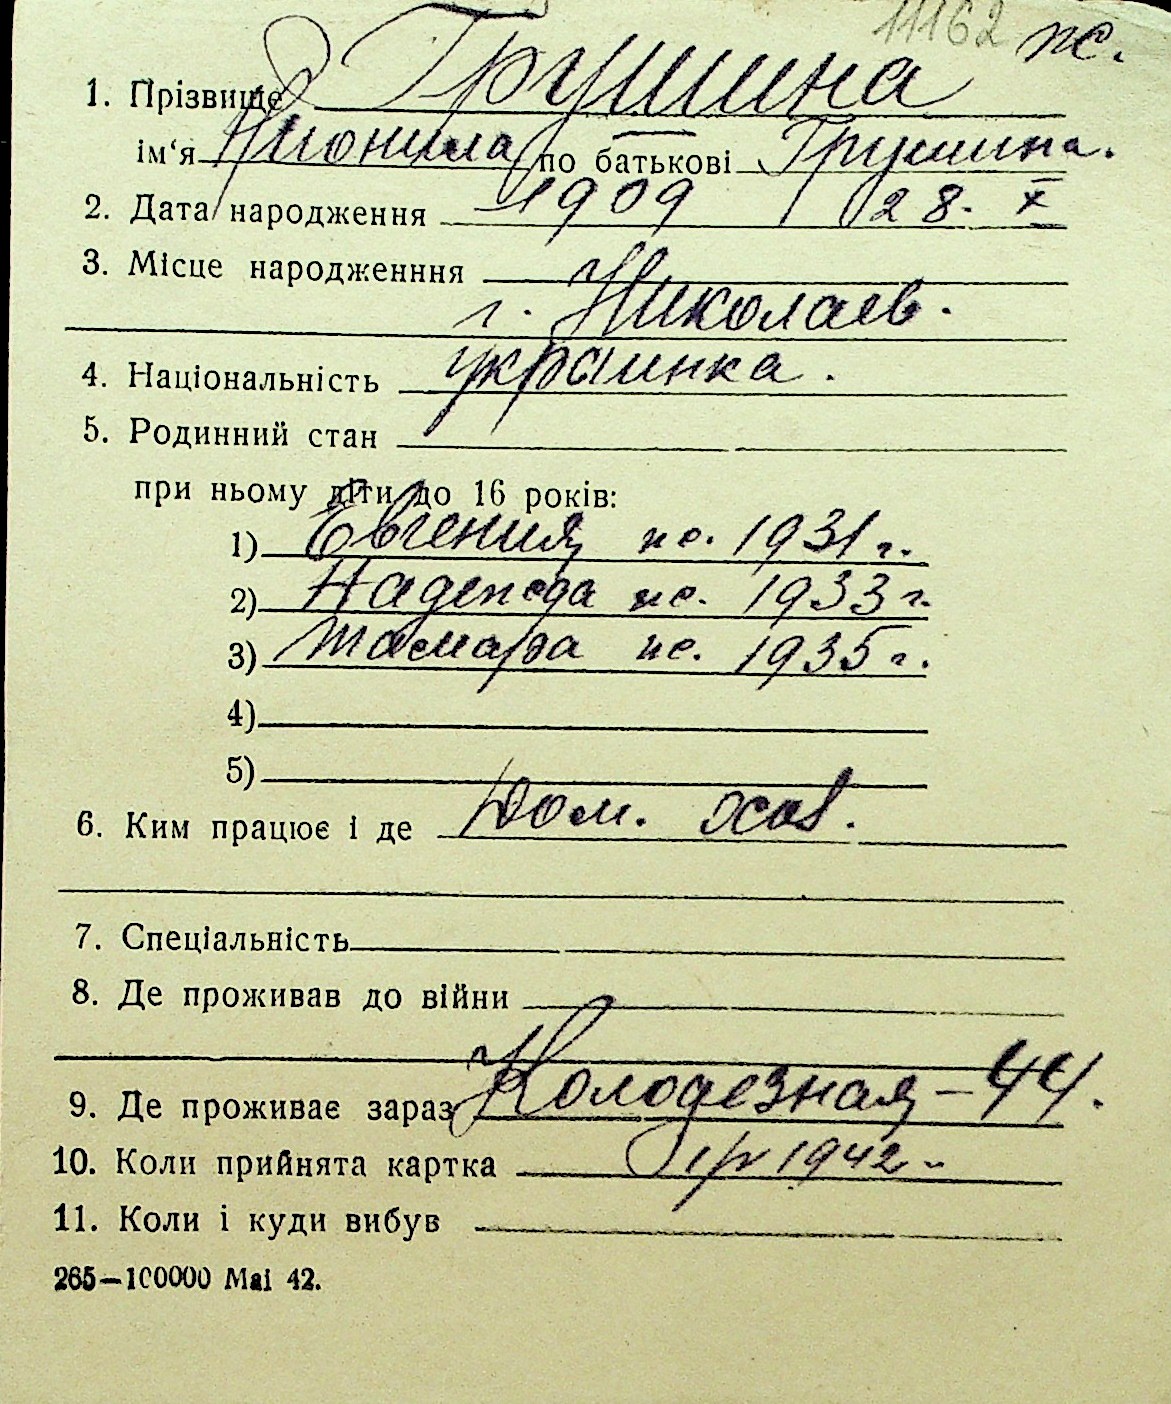 11162 ж.
1. Прізвище Грушина
ім‘я по батькові Грушина.
2. Дата народження 1909 28. X
3. Місце народженння
г. Николаев.
4. Національність украинка.
5. Родинний стан
при ньому діти до 16 років:
1) Евгения ж. 1931 г.
2) Надежда ж. 1933 г.
3) Тамара ж. 1935 г.
4)
5)
6. Ким працює і де Дом. хоз.
7. Спеціальність
8. Де проживав до війни
9. Де проживає зараз Колодезная – 44.
10. Коли прийнята картка 1942
11. Коли і куди вибув
265—100000 Mai 42.